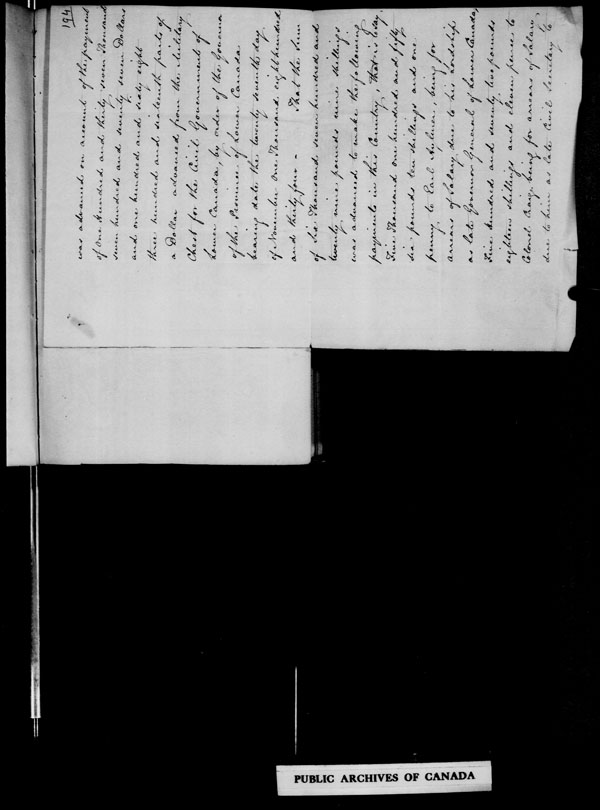 194
was advanced on account of the payment
of One Hundred and thirty seven Thousand
seven hundred and seventy seven Dollars
and one hundred and sixty eight
three hundred and sixteenth parts of
a Dollar advanced from the Military
Chest for the Civil Government of
Lower Canada, by order of the Governor
of the Province of Lower Canada
bearing date the twenty seventh day
of November One Thousand eight hundred
and thirty four - That the Sum
of Six Thousand seven hundred and
twenty nine pounds nine shillings
was advanced to make the following
payments in this Country, That is to say,
Five Thousand one hundred and fifty
six pounds ten shillings and one
penny to Earl Aylmer, being for
arrears of Salary due to his Lordship
as late Governor General of Lower Canada,
Five hundred and seventy two pounds
eighteen shillings and eleven pence to
Colonel Craig being for arrears of Salary
due to him as late Civil Secretary to
PUBLIC ARCHIVES OF CANADA